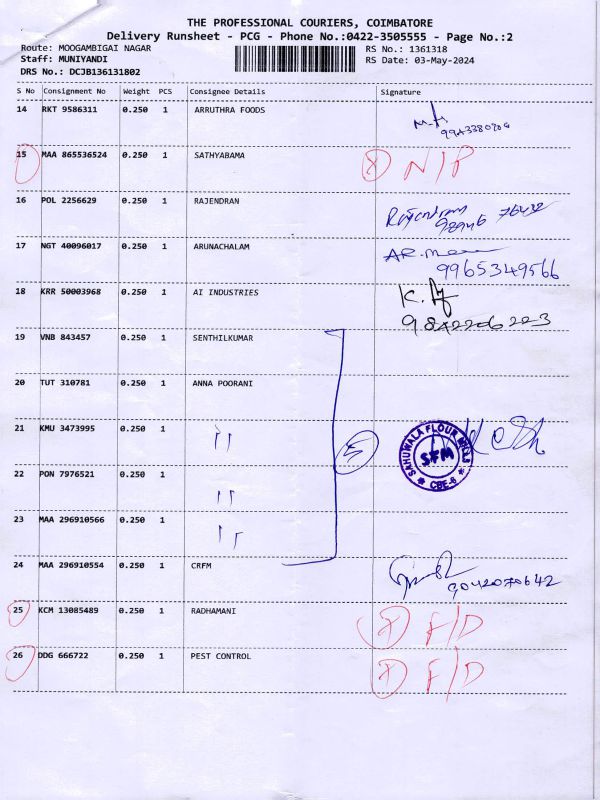 THE PROFESSIONAL COURIERS, COIMBATORE
Delivery Runsheet - PCG - Phone No.:0422-3505555 - Page No.:2
Route: MOOGAMBIGAI NAGAR RS No.: 1361318
Staff: MUNIYANDI RS Date: 03-May-2024
DRS No.: DCJB136131802
S No Consignment No Weight PCS Consignee Details Signature
14 RKT 9586311 0.250 1 ARRUTHRA FOODS
15 MAA 865536524 0.250 1 SATHYABAMA X N/P
16 POL 2256629 0.250 1 RAJENDRAN Rajendran
17 NGT 40096017 0.250 1 ARUNACHALAM
9965349566
18 KRR 50003968 0.250 1 AI INDUSTRIES
9842206223
19 VNB 843457 0.250 1 SENTHILKUMAR
20 TUT 310781 0.250 1 ANNA POORANI
21 KMU 3473995 0.250 1 " 5
SAHUWALA FLOUR MILLS
SFM
* CBE-6 *
22 PON 7976521 0.250 1 "
23 MAA 296910566 0.250 1 "
24 MAA 296910554 0.250 1 CRFM
9042070642
25 KCM 13085489 0.250 1 RADHAMANI X F/D
26 DDG 666722 0.250 1 PEST CONTROL X F/D